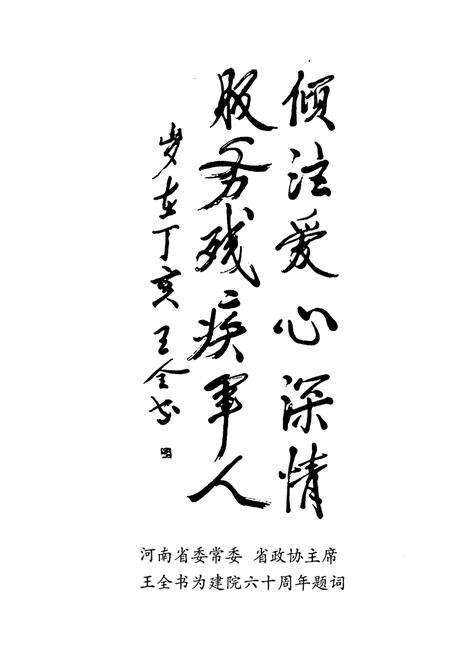 倾注爱心深情
服务残疾军人
岁在丁亥 王全书
河南省委常委 省政协主席
王全书为建院六十周年题词